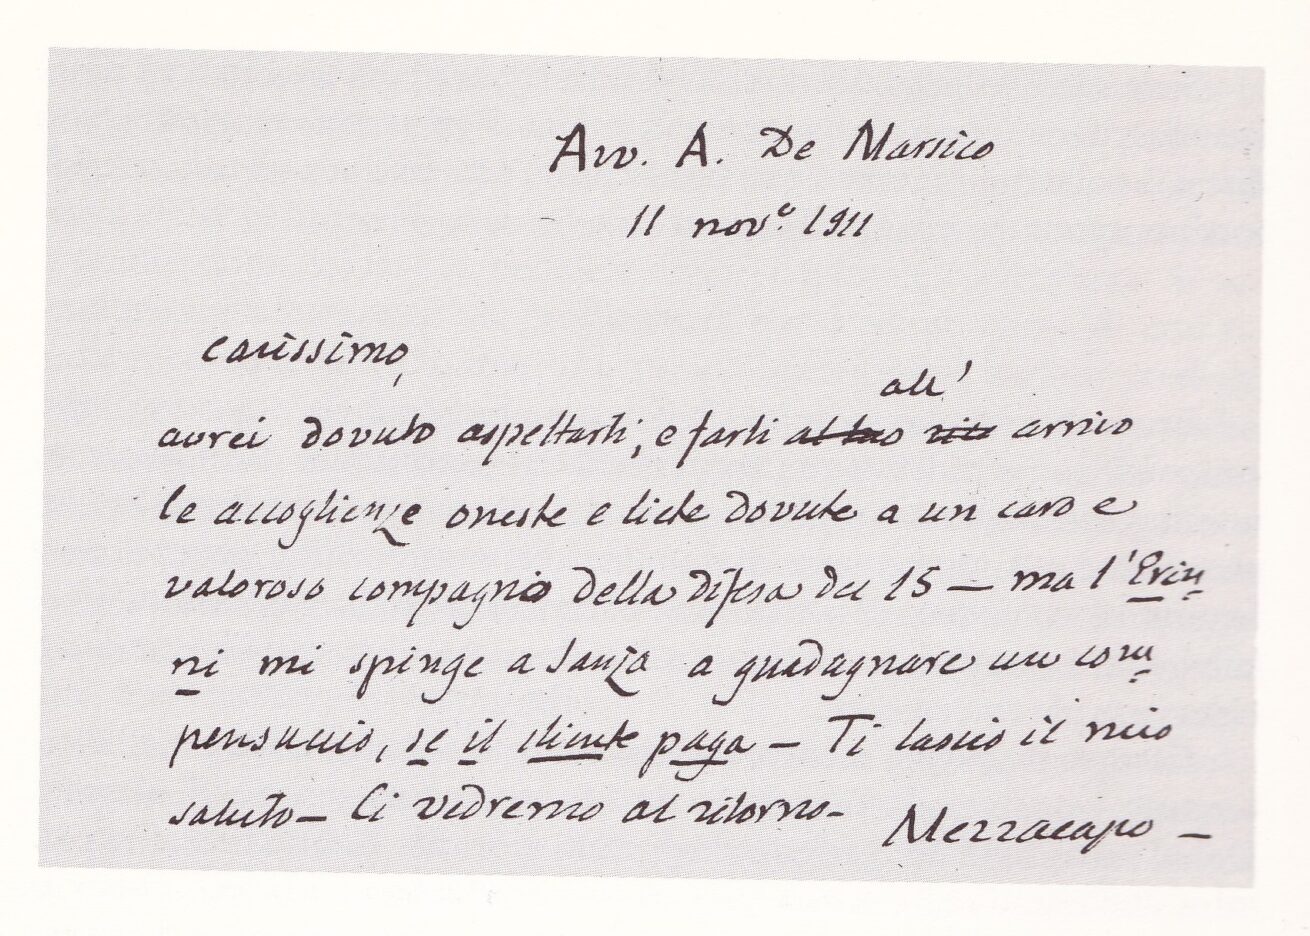 Avv. A. De Marsico
11 nov.e 1911
carissimo,
all'
avrei dovuto aspettarti, e farti al tuo arrivo
le accoglienze oneste e liete dovute a un caro e
valoroso compagno della difesa del 15 — ma l'Erin
ni mi spinge a Sanza a guadagnare un com
pensuccio, se il cliente paga — Ti lascio il mio
saluto — Ci vedremo al ritorno —
Mezzacapo —